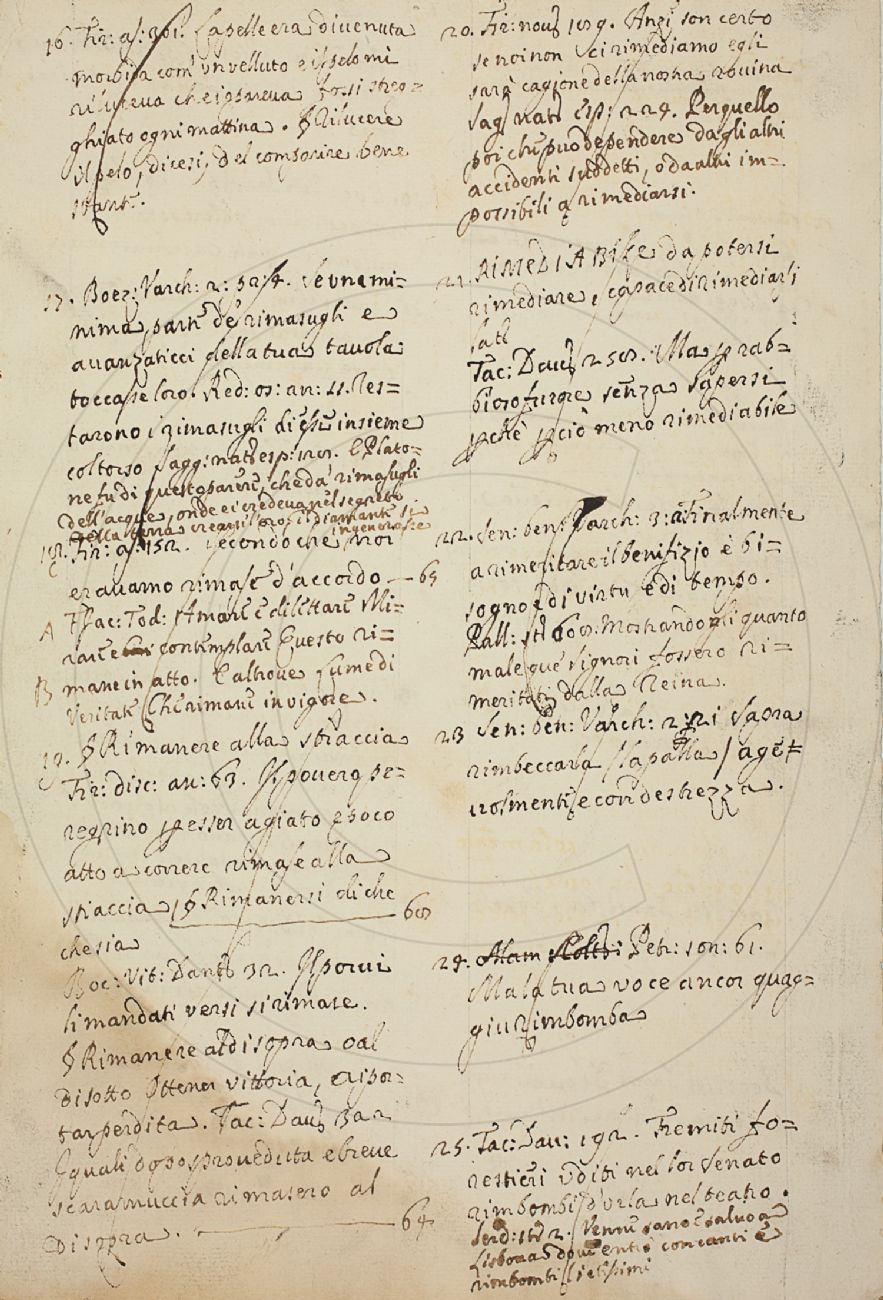 16. Fir: as: 361. La pelle era divenuta
morbida com' un velluto e il pelo mi
riluceva che i pareva fossi streg=
ghiato ogni mattina. § Rilucere
il pelo, dicesi, del comparire bene
stante.
17. Boez: Varch: 2: pa: 4. Se una mi=
nima parte de' rimasugli e
avanzaticci della tua tavola
toccasse loro. Red: os: an: 41. Res=
tarono i rimasugli di esse insieme
col torso Sagg: nat: esp: E Plato=
ne fu di questo parere, che da' rimasugli
dell'acque, onde ei credeva nel segreto
della terra crearsi l'oro, il diamante si
ingenerasse
18. Fir: as: 152. secondo che noi
eravamo rimasti d'accordo — 65
A F Jac: Tod: Amare e dilettare Mi=
rare e contemplare Questo ri=
B mane in atto. E altrove Lume di
Veritate Che rimane in vigore.
19. § Rimanere alla stiaccia
Fir: disc: an: 63. Il povero pe=
regrino per esser agiato e poco
atto a correre rimase alla
stiaccia § Rimanersi di che
— 60
che sia
Boc: Vit: Dant: 32. Il porvi
li mandati versi si rimase.
§ Rimanere al disopra o al
disotto Ottener vittoria, e ripor=
tar perdita. Tac: Dav: 3
I quali dopo sproveduta e breve
scaramuccia rimasero al
Disopra. — 64
20. Fir: nov: Anzi son certo
se noi non ci rimediamo egli
sarà cagione della nostra rovina
Sag: nat: esp: 224. Per quello
poi che può dependere dagli altri
accidenti suddetti, o da altri im=
possibili a rimediarsi.
21. RIMEDIABILE da potersi
rimediare, capace di rimediarsi
Lat
Tac: Dav: 250. Ma per rab=
bioso furore senza sapersi
perchè per ciò meno rimediabile
22. Sen: ben: Varch: 3: Finalmente
a rimeritare il benifizio è bi=
sogno e di virtù e di tempo.
Pall: st: 600. Mostrando gli quanto
male que' Signori fossero ri=
meritati dalla Reina.
23 Sen: ben: Varch: 2: 21 Sapra
rimbeccarla / la palla / agie=
volmente e con destrezza.
24. Petr: son: 61.
Ma la tua voce ancor quag=
giu rimbomba
25. Tac: Dav: 192. Fremiti fo=
restieri uditi nel lor Senato
rimbombi d'urla nel teatro.
Serd: st: 2. Venne sano e salvo a
Lisbona dove entrò con canti e
rimbombi lietissimi